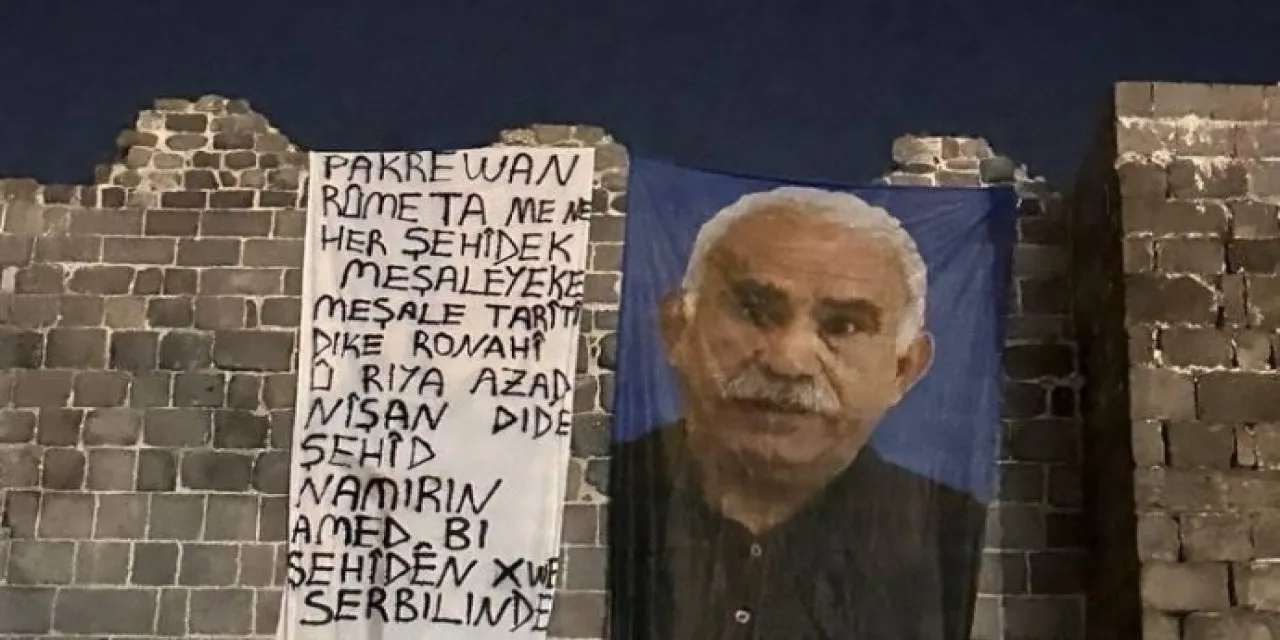 PAKREWAN
RÛMETA ME NE
HER ŞEHÎDEK
MEŞALEYEKE
MEŞALE TARÎTÎ
DIKE RONAHÎ
Û RIYA AZAD
NÎŞAN DIDE
ŞEHÎD
NAMIRIN
AMED BI
ŞEHÎDÊN XWE
SERBILINDE